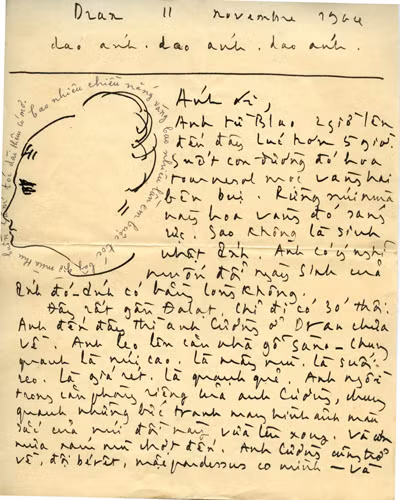 Dran 11 novembre 1964
dao ánh. dao ánh. dao ánh.
bao nhiêu chiều nắng vàng bao nhiêu lần em buộc tóc bây giờ mùa thu
Ánh ơi,
Anh từ Blao 2 giờ lên
đến đây lúc hơn 5 giờ.
Suốt con đường đó hoa
tournesol mọc vàng hai
bên bụi. Rừng núi mùa
này hoa vàng đó sáng
rực. Sao không là sinh
nhật Ánh. Anh có ý nghĩ
muốn đổi ngày sinh của
Ánh đó - Ánh có bằng lòng không.
Đây rất gần Đalat. Chỉ độ có 30 thôi.
Anh đến đây thì anh Cường ở Dran chưa
về. Anh leo lên căn nhà gỗ - chung
quanh là núi cao. là mây mù. là suối
reo. là giá rét. là quạnh quẽ. Anh ngồi
trong căn phòng riêng của anh Cường, chung
quanh những bức tranh mang hình ảnh màu
sắc của núi đồi vừa xong. Và cơn
mưa chợt đến. Anh Cường cũng trở
về, đội bérêt, mặc pardessus co mình - và